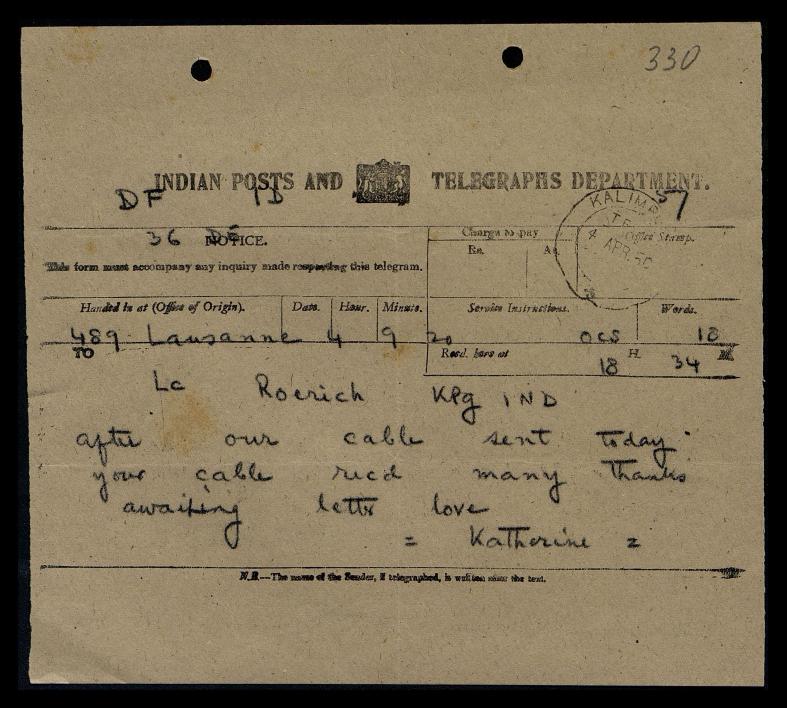 330
INDIAN POSTS AND TELEGRAPHS DEPARTMENT.
DF 1D 57
36 DF
NOTICE.
This form must accompany any inquiry made respecting this telegram.
Charge to pay
Rs. As.
Office Stamp.
KALIMP
4 APR.50
Handed in at (Office of Origin). Date. Hour. Minute. Service Instructions. Words.
489 Lausanne 4 9 20 OCS 18
TO
Recd. here at 18 H. 34 M.
Lc Roerich KPg IND
after our cable sent today
your cable recd many thanks
awaiting lettr love
= Katherine =
N.B.—The name of the Sender, if telegraphed, is written near the text.